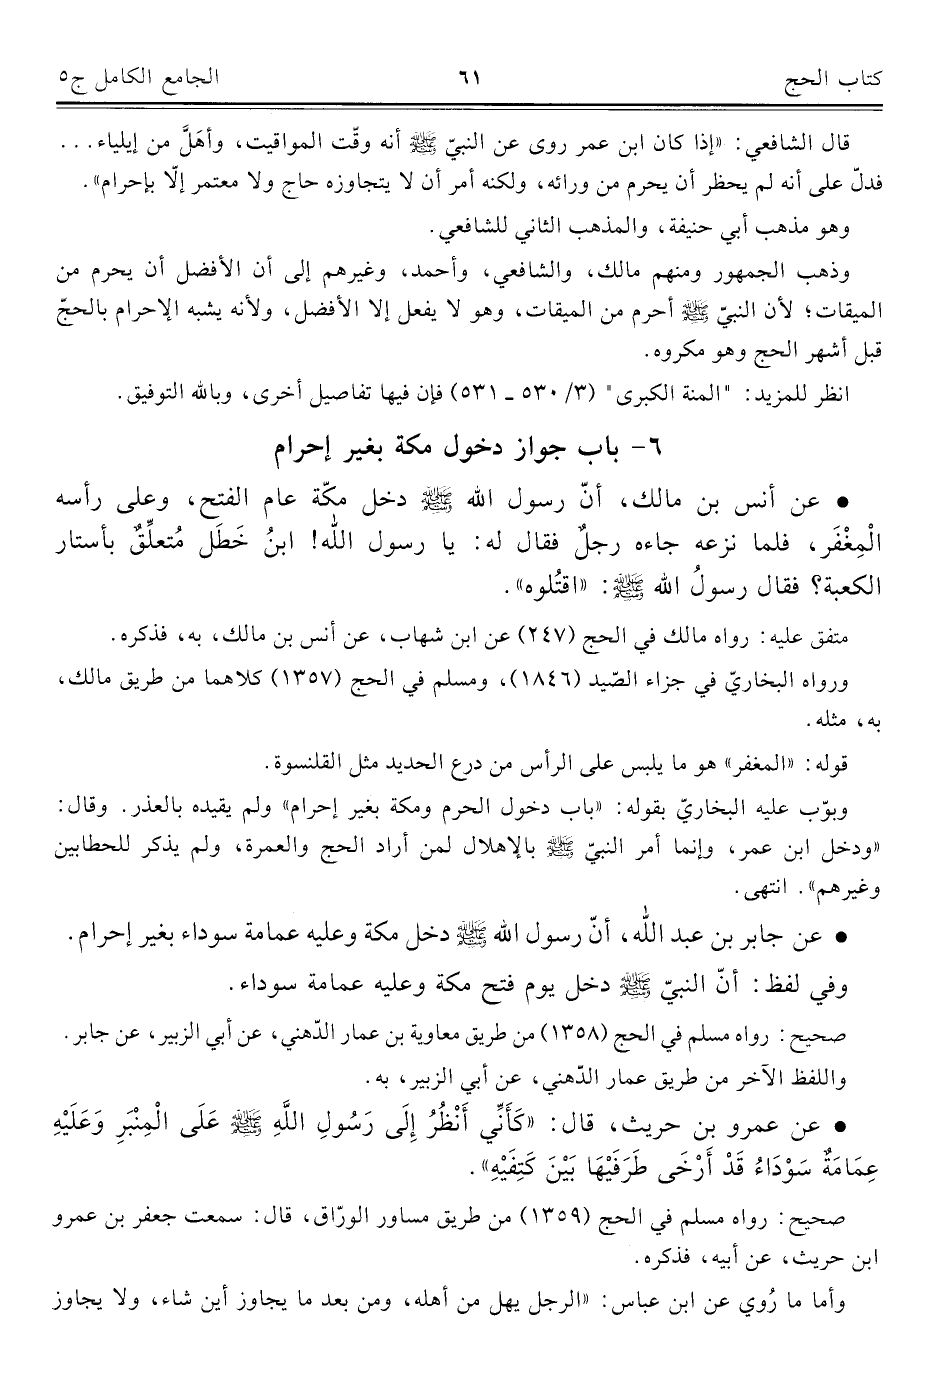 كتاب الحج ٦١ الجامع الكامل ج٥
قال الشافعي: «إذا كان ابن عمر روى عن النبيّ ﷺ أنه وقّت المواقيت، وأهَلَّ من إيلياء...
فدلّ على أنه لم يحظر أن يحرم من ورائه، ولكنه أمر أن لا يتجاوزه حاج ولا معتمر إلّا بإحرام».
وهو مذهب أبي حنيفة، والمذهب الثاني للشافعي.
وذهب الجمهور ومنهم مالك، والشافعي، وأحمد، وغيرهم إلى أن الأفضل أن يحرم من
الميقات؛ لأن النبيّ ﷺ أحرم من الميقات، وهو لا يفعل إلا الأفضل، ولأنه يشبه الإحرام بالحجّ
قبل أشهر الحج وهو مكروه.
انظر للمزيد: "المنة الكبرى" (٣/ ٥٣٠ ـ ٥٣١) فإن فيها تفاصيل أخرى، وبالله التوفيق.
٦- باب جواز دخول مكة بغير إحرام
• عن أنس بن مالك، أنّ رسول الله ﷺ دخل مكّة عام الفتح، وعلى رأسه
الْمِغْفَر، فلما نزعه جاءه رجلٌ فقال له: يا رسول الله! ابنُ خَطَل مُتعلِّقٌ بأستار
الكعبة؟ فقال رسولُ الله ﷺ: «اقتُلوه».
متفق عليه: رواه مالك في الحج (٢٤٧) عن ابن شهاب، عن أنس بن مالك، به، فذكره.
ورواه البخاريّ في جزاء الصّيد (١٨٤٦)، ومسلم في الحج (١٣٥٧) كلاهما من طريق مالك،
به، مثله.
قوله: «المغفر» هو ما يلبس على الرأس من درع الحديد مثل القلنسوة.
وبوّب عليه البخاريّ بقوله: «باب دخول الحرم ومكة بغير إحرام» ولم يقيده بالعذر. وقال:
«ودخل ابن عمر، وإنما أمر النبيّ ﷺ بالإهلال لمن أراد الحج والعمرة، ولم يذكر للحطابين
وغيرهم». انتهى.
• عن جابر بن عبد الله، أنّ رسول الله ﷺ دخل مكة وعليه عمامة سوداء بغير إحرام.
وفي لفظ: أنّ النبيّ ﷺ دخل يوم فتح مكة وعليه عمامة سوداء.
صحيح: رواه مسلم في الحج (١٣٥٨) من طريق معاوية بن عمار الدّهني، عن أبي الزبير، عن جابر.
واللفظ الآخر من طريق عمار الدّهني، عن أبي الزبير، به.
• عن عمرو بن حريث، قال: «كَأَنِّي أَنْظُرُ إِلَى رَسُولِ اللَّهِ ﷺ عَلَى الْمِنْبَرِ وَعَلَيْهِ
عِمَامَةٌ سَوْدَاءُ قَدْ أَرْخَى طَرَفَيْهَا بَيْنَ كَتِفَيْهِ».
صحيح: رواه مسلم في الحج (١٣٥٩) من طريق مساور الورّاق، قال: سمعت جعفر بن عمرو
ابن حريث، عن أبيه، فذكره.
وأما ما رُوي عن ابن عباس: «الرجل يهل من أهله، ومن بعد ما يجاوز أين شاء، ولا يجاوز